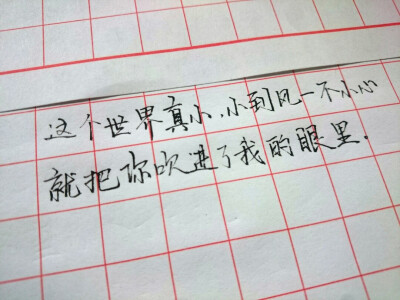 这个世界真小，小到风一不小心
就把你吹进了我的眼里.